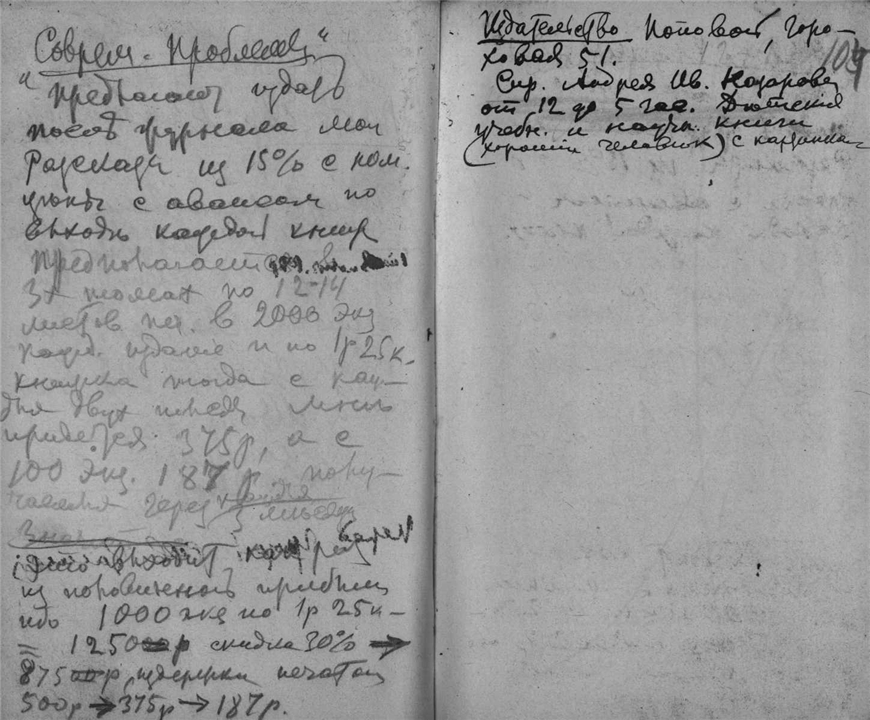 „Соврем. Проблемы“
Предлагает издать
после журнала мои
Рассказы из 15% с ном.
цены с авансом по
выходе каждой книги
Предполагается в
3х томах по 12-14
листов печ. в 2000 экз
кажд. издание и по 1р 25к.
книжка тогда с каж-
дых двух тысяч мне
придется 375р, а с
100 экз. 187р полу-
чаемых через каждые
3 месяца
Это выходит
из половинной прибыли
ибо 1000 экз по 1р 25к –
= 1250р скидка 30% →
875р, издержки печатан
500р → 375р → 187р.
Издательство Поповой, Горо-
ховая 51.
104
Спр. Андрея Ив. Назарова
от 12 до 5 час. Дѣтския
учебн. и научн. книги
(хороший человек) с картинка-